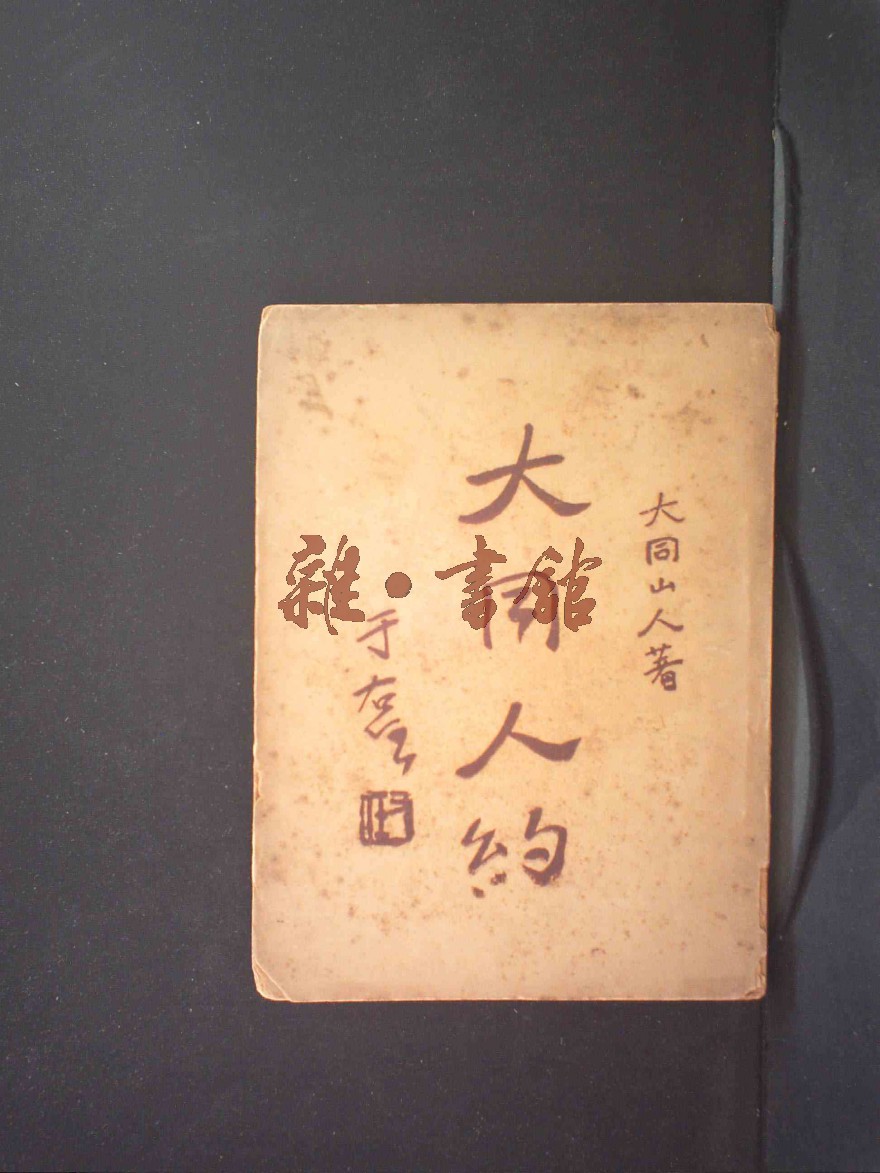 大同山人著
大同人約
于右任
雜·書館